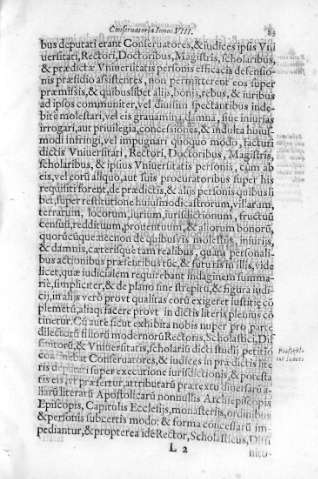 Conseruatoria Innoc. VIII. 83
bus deputati erant Conseruatores, & iudices ipsis Vni
uersitati, Rectori, Doctoribus, Magistris, scholaribus,
& prædictæ Vniuersitatis personis efficacis defensio-
nis præsidio assistentes, non permitterent eos super
præmissis, & quibuslibet alijs, bonis, rebus, & iuribus
ad ipsos communiter, vel diuisim spectantibus inde-
bitè molestari, vel eis grauamina, damna, siue iniurias
irrogari, aut priuilegia, concessiones, & indulta huius-
modi infringi, vel impugnari quoquo modo, facturi
dictis Vniuersitati, Rectori, Doctoribus, Magistris,
scholaribus, & ipsius Vniuersitatis personis, cum ab
eis, vel eorū aliquo, aut suis procuratoribus super his
requisiti forent, de prædictis, & alijs personis quibusli
bet, super restitutione huiusmodi castrorum, villarum,
terrarum, locorum, iurium, iurisdictionum, fructuū
censuū, reddituum, prouentuum, & aliorum bonorū,
quorūcunque necnon de quibusuis molestijs, iniurijs,
& damnis, cæterisque tam realibus, quàm personali-
bus actionibus præteritis tūc, & futuris in illis, vide
licet, quæ iudicialem requirebant indaginem summa-
riè, simpliciter, & de plano sine strepitu, & figura iudi-
cij, in alijs verò prout qualitas eorū exigeret iustitię cō
plemētū, aliaq; facere prout in dictis literis plenius cō
tinetur. Cū autē sicut exhibita nobis nuper pro parte
dilectorū filiorū modernorū Rectoris, Scholastici, Dif
finitorū, & Vniuersitatis, scholariū dicti studij petitio
continebat Conseruatores, & iudices in prædictis lite
ris deputati super executione iurisdictionis, & potesta
tis eis, ut præfertur, attributarū prætextu diuersarū a-
liarū literarum Apostolicarū nonnullis Archiepiscopis
Episcopis, Capitulis Ecclesijs, monasterijs, ordinibus
& personis sub certis modo, & forma concessarū im-
pediantur, & propterea idē Rector, Scholasticus, Diffi
L 2
nito-